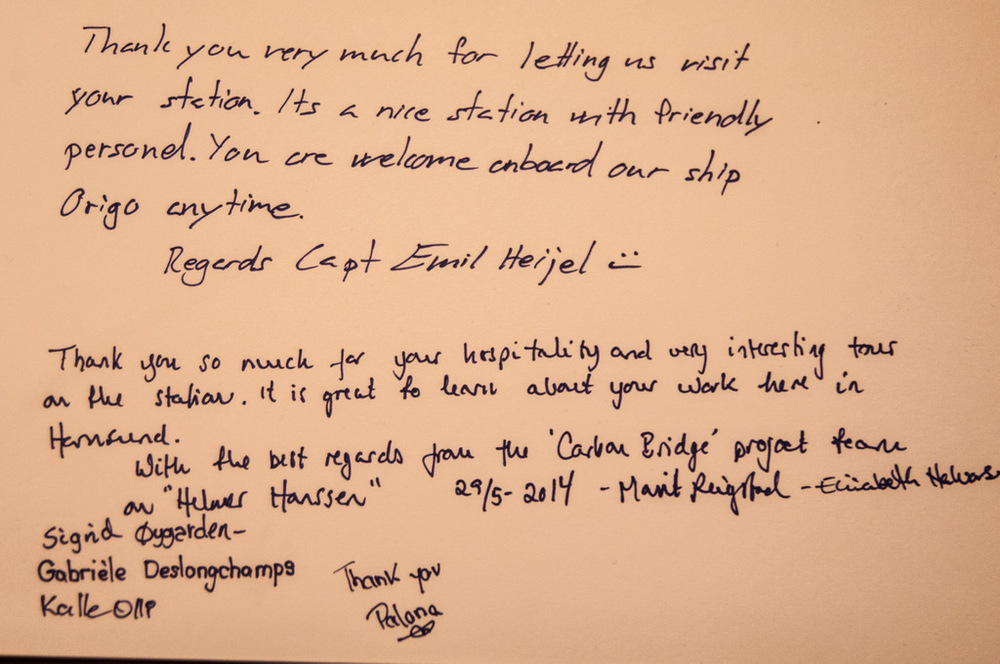 Thank you very much for letting us visit
your station. Its a nice station with friendly
personel. You are welcome onboard our ship
Origo anytime.
Regards Capt Emil Heijel :)
Thank you so much for your hospitality and very interesting tour
on the station. It is great to learn about your work here in
Hornsund.
With the best regards from the 'Carbon Bridge' project team
on "Helmer Hanssen" 29/5-2014 - Marit Reigstad - Elisabeth
Sigrid Øygarden-
Gabrièle Deslongchamps
Kalle Olli
Thank you